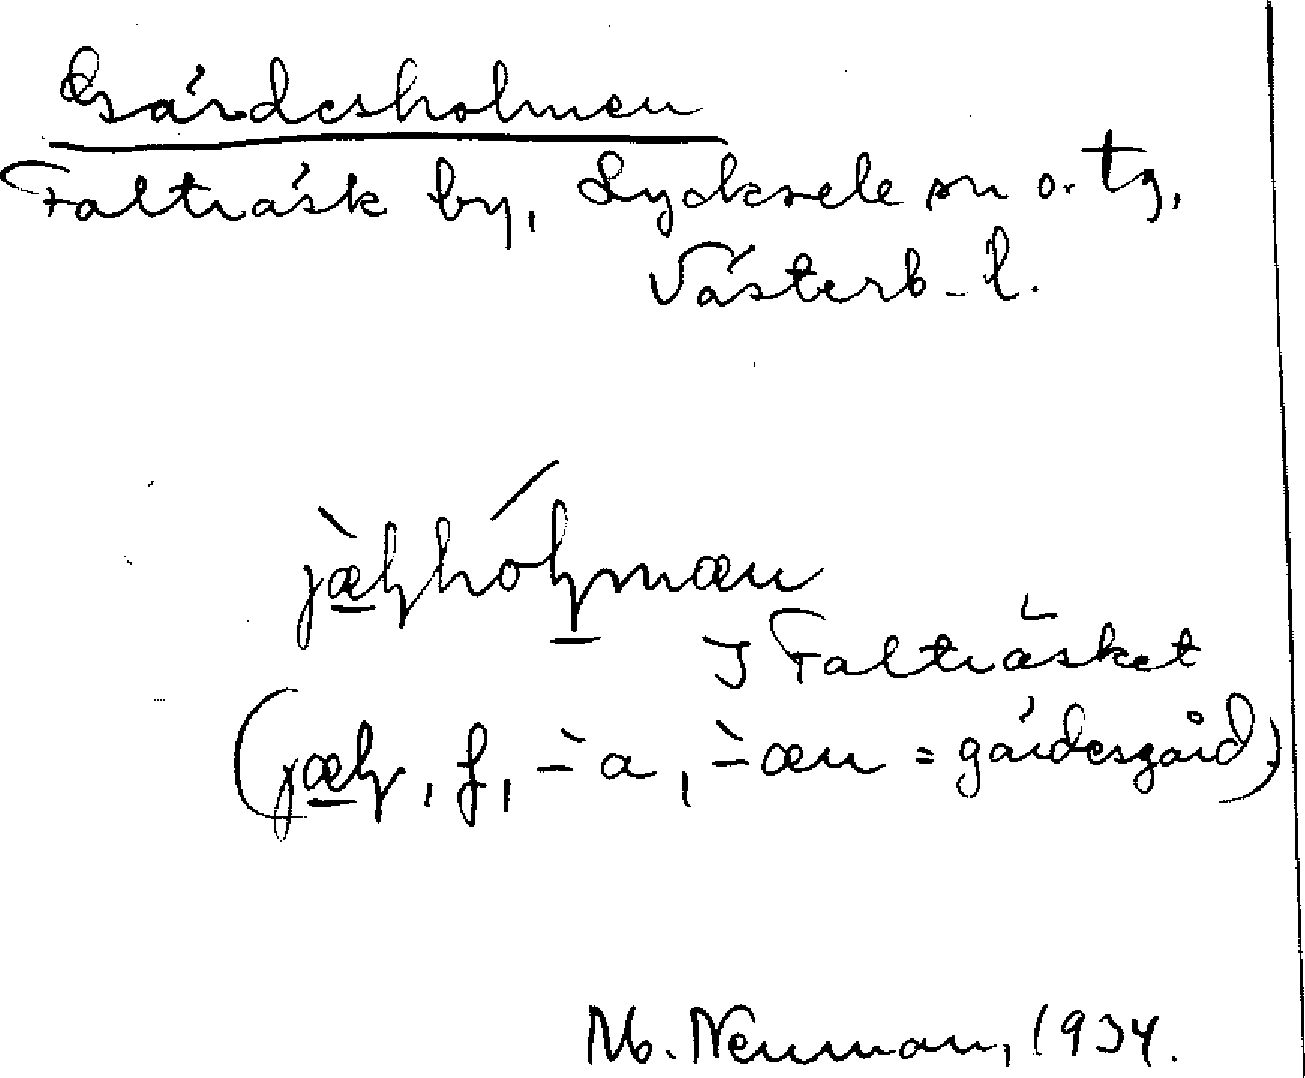 Gärdesholmen
Falträsk by, Lycksele sn o. tg,
Västerb. l.
jæ̀ḷhóḷmæn
I Falträsket
(jæḷ, f, -̀a, -̀æn = gärdesgård)
M. Neuman, 1934.